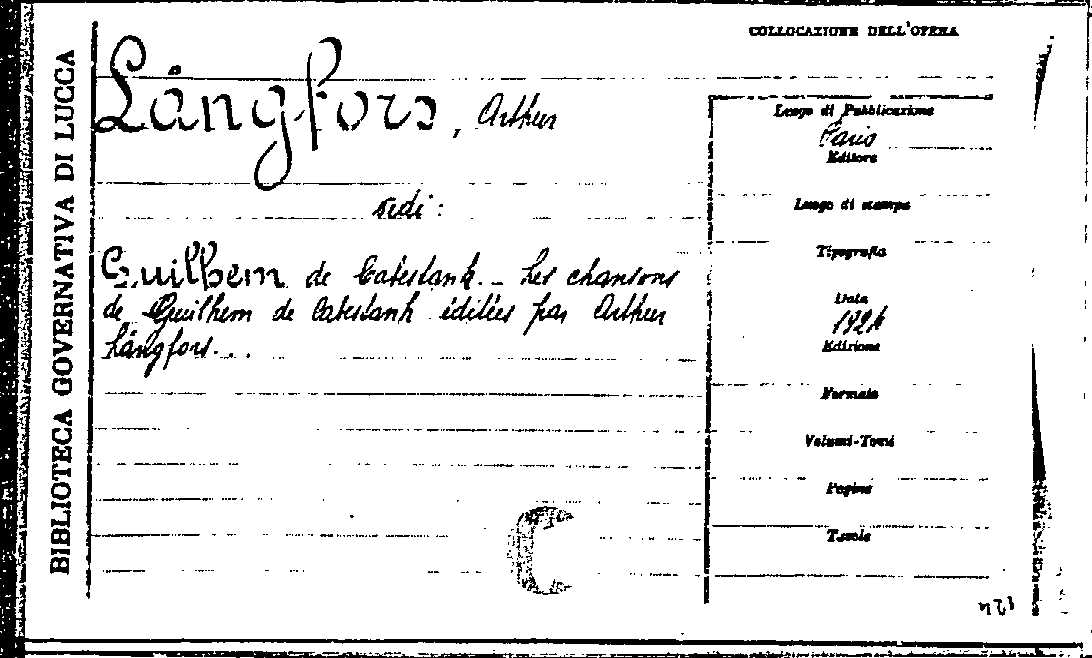 COLLOCAZIONE DELL'OPERA
BIBLIOTECA GOVERNATIVA DI LUCCA
Långfors, Arthur
vedi:
Guilhem de Cabestanh. - Les chansons
de Guilhem de Cabestanh éditées par Arthur
Långfors...
Luogo di Pubblicazione
Paris
Editore
Luogo di stampa
Tipografia
Data
1924
Edizione
Formato
Volumi-Tomi
Pagine
Tavole
C